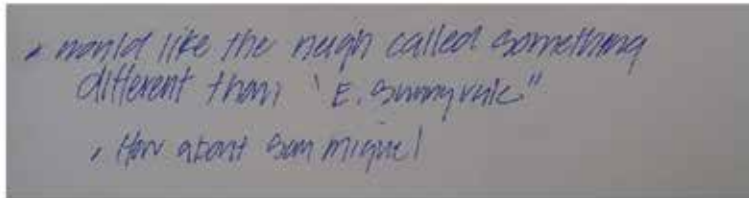 • would like the neigh called something
different than "E. Sunnyvale"
• How about San Miguel